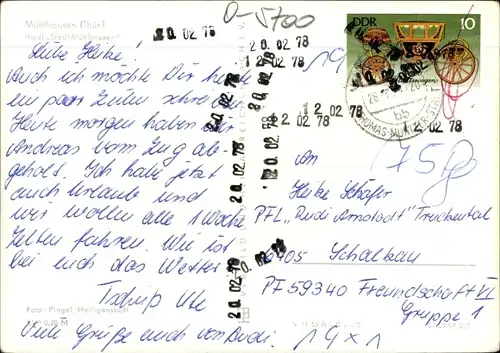 Mühlhausen (Thür.)
Hotel "Stadt Mühlhausen"
Liebe Heike!
Auch ich möchte Dir heute
ein paar Zeilen schreiben
Heute morgen haben wir
Andreas vom Zug ab-
geholt. Ich habe jetzt
auch Urlaub und
wir wollen alle 1 Woche
Zelten fahren. Wie ist
bei euch das Wetter
Tschüß Ute
Viele Grüße auch von Rudi.
Foto: Pingel, Heiligenstadt
DDR
10
20.02.78
20.02.78
12.02.78
12.02.78
12.02.78
20.02.78
20.02.78
20.02.78
20.02.78
THOMAS-MÜNTZER
19
D-5700
75
An
Heike Schäfer
PFL "Rudi Arnstadt" Truckental
6405 Schalkau
PF 59340 Freundschaft VI
Gruppe 1
19x1